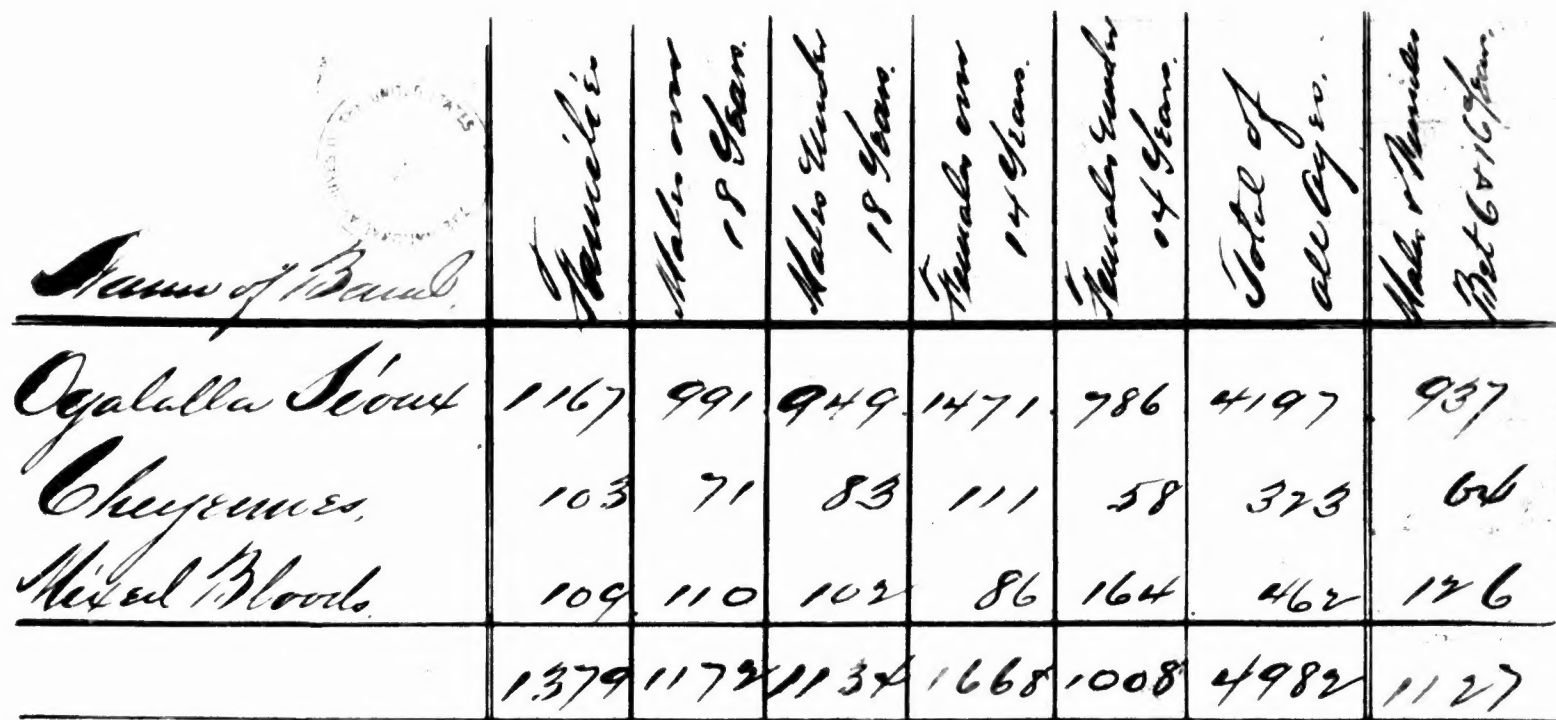 Name of Band. Families Males over 18 Years. Males Under 18 Years. Females over 14 Years. Females Under 14 Years. Total of all ages. Males & Females Bet 6 & 16 Years.
Ogalalla Sioux 1167 991 949 1471 786 4197 937
Cheyennes. 103 71 83 111 58 323 64
Mixed Bloods. 109 110 102 86 164 462 126
1379 1172 1134 1668 1008 4982 1127